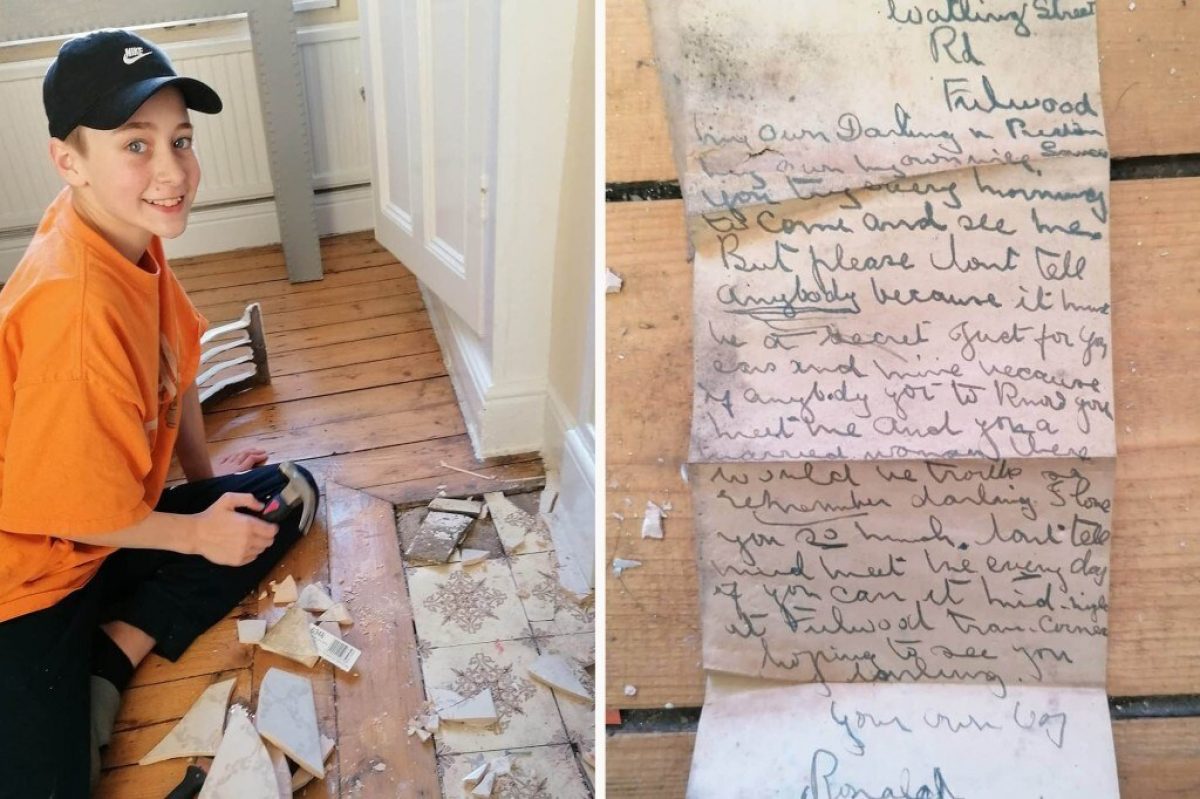 NIKE
Watling Street
Rd
Fulwood
my own Darling in Preston
my own
you try every morning
to come and see me.
But please dont tell
anybody because it must
be a secret Just for
ears and mine because
if anybody got to know you
meet me and you a
married woman there
would be so
remember darling I love
you so much. dont tell
mind meet me every day
if you can it mid-night
at Fulwood Tram-Corner
hoping to see you
darling.
your own boy
Ronald